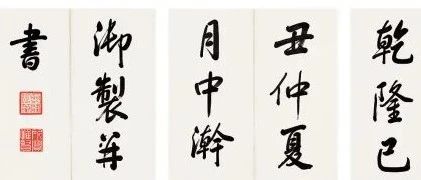 乾隆己
丑仲夏
月中澣
御製并
書